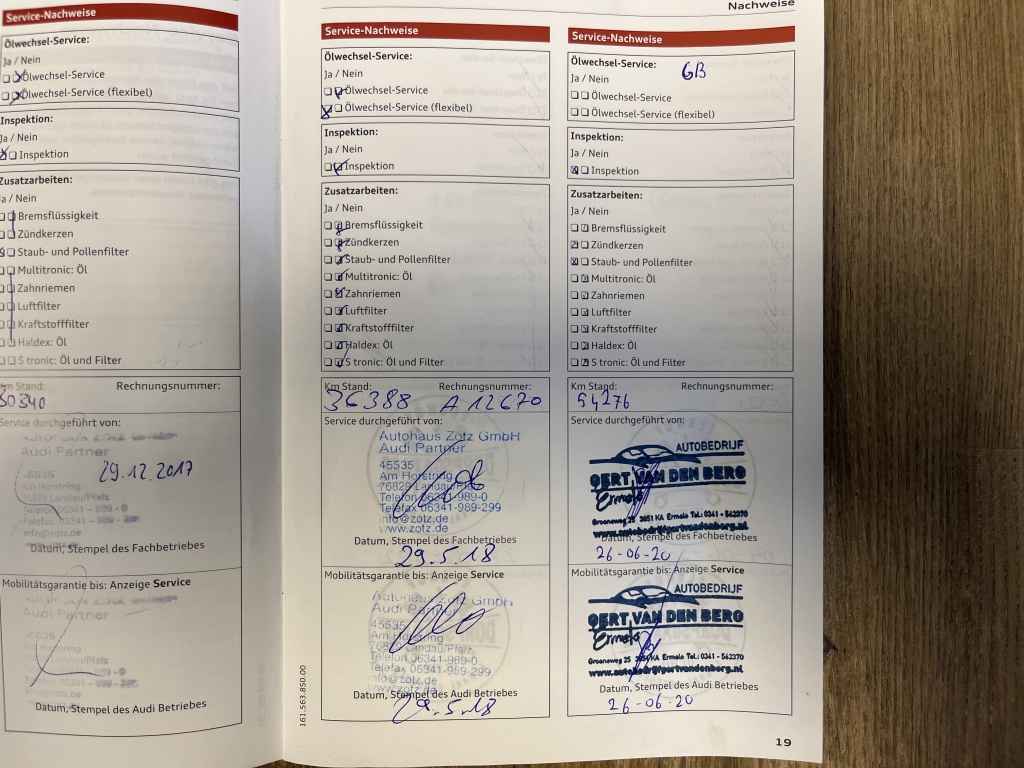 Service-Nachweise
Ölwechsel-Service:
Ja / Nein
Ölwechsel-Service
Ölwechsel-Service (flexibel)
Inspektion:
Ja / Nein
Inspektion
Zusatzarbeiten:
Ja / Nein
Bremsflüssigkeit
Zündkerzen
Staub- und Pollenfilter
Multitronic: Öl
Zahnriemen
Luftfilter
Kraftstofffilter
Haldex: Öl
S tronic: Öl und Filter
Km Stand: Rechnungsnummer:
30340
Service durchgeführt von:
Audi Partner
29.12.2017
Datum, Stempel des Fachbetriebes
Mobilitätsgarantie bis: Anzeige Service
Audi Partner
Datum, Stempel des Audi Betriebes
Service-Nachweise
Ölwechsel-Service:
Ja / Nein
Ölwechsel-Service
Ölwechsel-Service (flexibel)
Inspektion:
Ja / Nein
Inspektion
Zusatzarbeiten:
Ja / Nein
Bremsflüssigkeit
Zündkerzen
Staub- und Pollenfilter
Multitronic: Öl
Zahnriemen
Luftfilter
Kraftstofffilter
Haldex: Öl
S tronic: Öl und Filter
Km Stand: Rechnungsnummer:
36388 A12670
Service durchgeführt von:
Autohaus Zotz GmbH
Audi Partner
45535
Am Horstring
76829 Landau/Pfalz
Telefon 06341-989-0
Telefax 06341-989-299
info@zotz.de
www.zotz.de
Datum, Stempel des Fachbetriebes
29.5.18
Mobilitätsgarantie bis: Anzeige Service
Autohaus Zotz GmbH
Audi Partner
45535
Am Horstring
76829 Landau/Pfalz
Telefon 06341-989-0
Telefax 06341-989-299
info@zotz.de
www.zotz.de
Datum, Stempel des Audi Betriebes
29.5.18
161.563.850.00
Nachweise
Service-Nachweise
Ölwechsel-Service:
GB
Ja / Nein
Ölwechsel-Service
Ölwechsel-Service (flexibel)
Inspektion:
Ja / Nein
Inspektion
Zusatzarbeiten:
Ja / Nein
Bremsflüssigkeit
Zündkerzen
Staub- und Pollenfilter
Multitronic: Öl
Zahnriemen
Luftfilter
Kraftstofffilter
Haldex: Öl
S tronic: Öl und Filter
Km Stand: Rechnungsnummer:
54276
Service durchgeführt von:
AUTOBEDRIJF
GERT VAN DEN BERG
Ermelo
Groeneweg 25 3851 KA Ermelo Tel.: 0341 - 562370
www.autobedrijfgertvandenberg.nl
Datum, Stempel des Fachbetriebes
26-06-20
Mobilitätsgarantie bis: Anzeige Service
AUTOBEDRIJF
GERT VAN DEN BERG
Ermelo
Groeneweg 25 3851 KA Ermelo Tel.: 0341 - 562370
www.autobedrijfgertvandenberg.nl
Datum, Stempel des Audi Betriebes
26-06-20
19